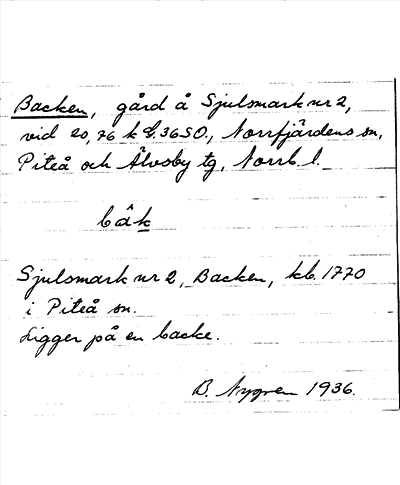 Backen, gård å Sjulsmark nr 2,
vid 20,76 k G. 36SO., Norrfjärdens sn,
Piteå och Älvsby tg, Norrb. l.
båk
Sjulsmark nr 2, Backen, kb. 1770
i Piteå sn.
Ligger på en backe.
B. Nygren 1936.